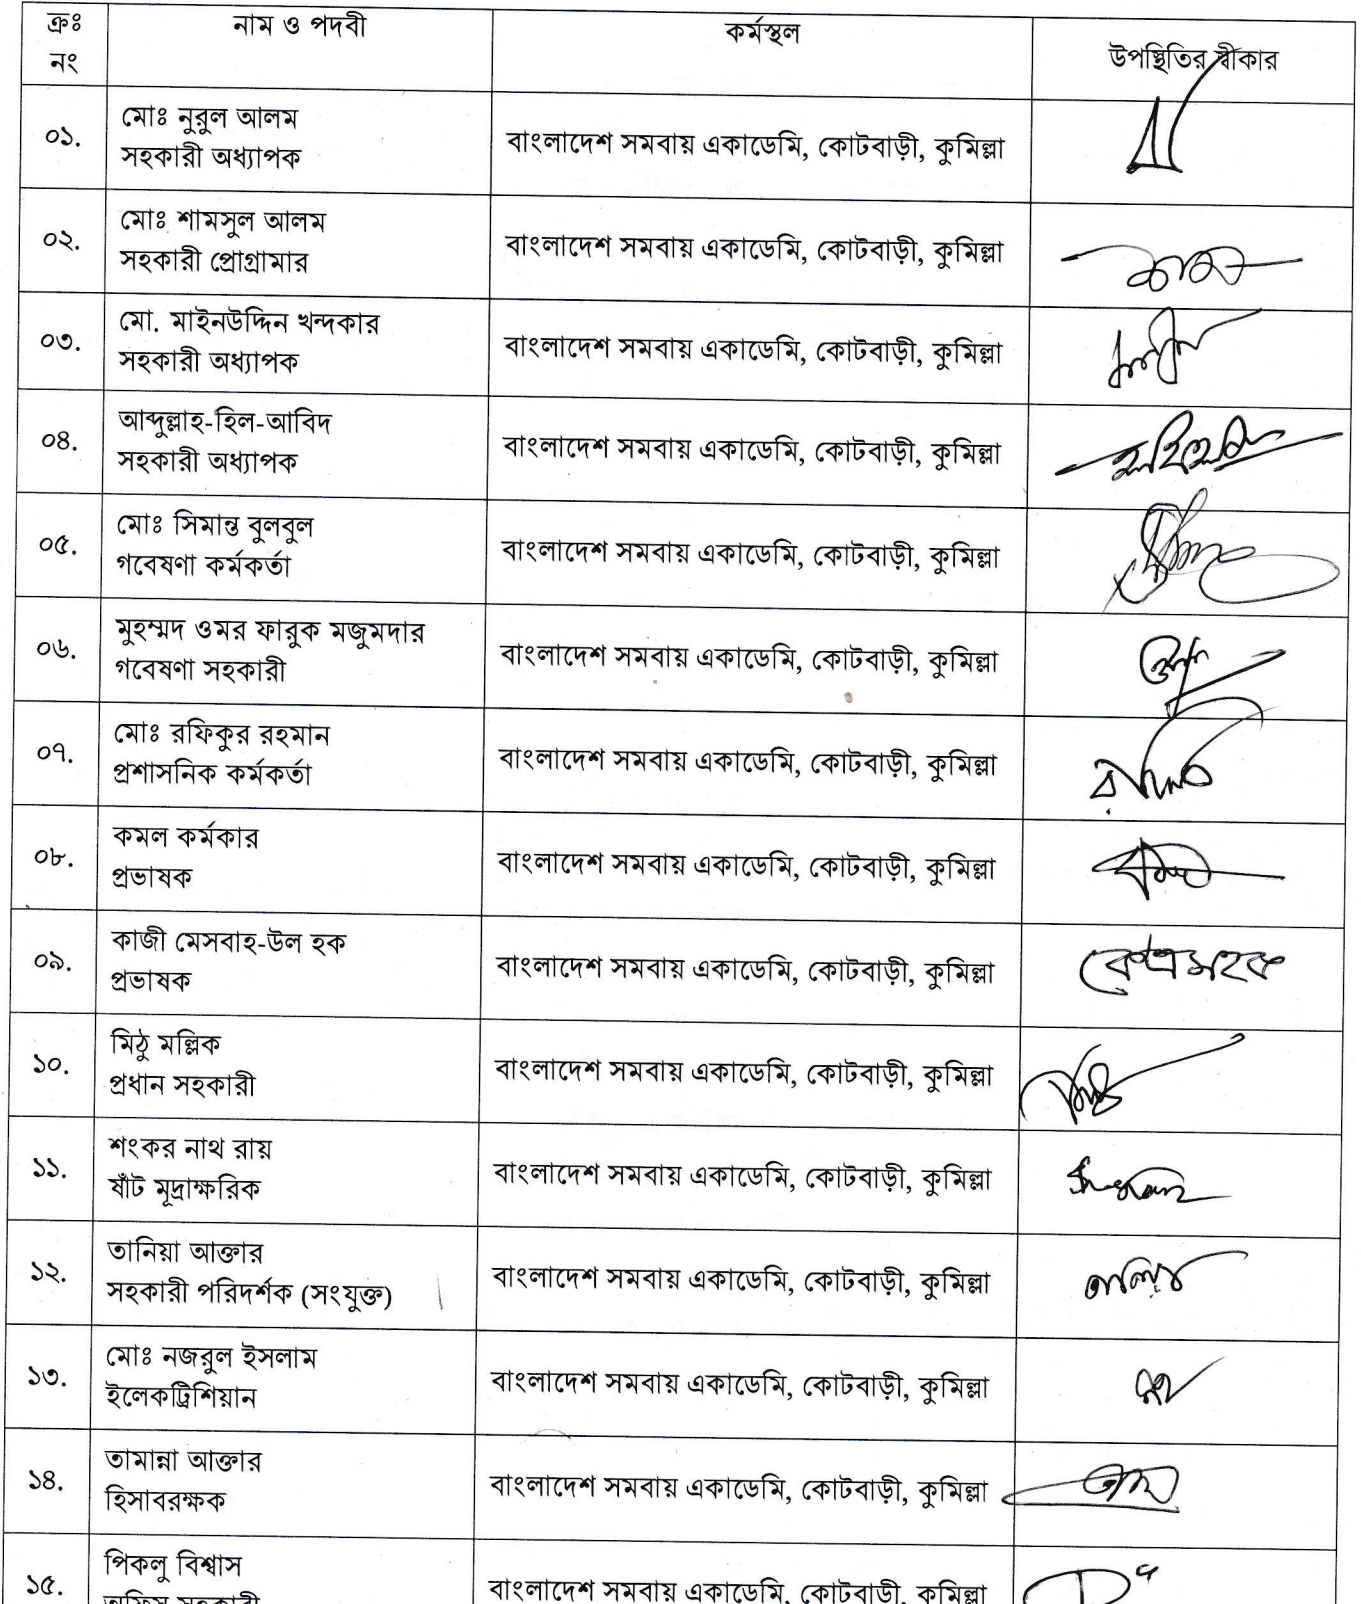 ক্রঃ নং নাম ও পদবী কর্মস্থল উপস্থিতির স্বীকার
০১. মোঃ নুরুল আলম
সহকারী অধ্যাপক
বাংলাদেশ সমবায় একাডেমি, কোটবাড়ী, কুমিল্লা
০২. মোঃ শামসুল আলম
সহকারী প্রোগ্রামার
বাংলাদেশ সমবায় একাডেমি, কোটবাড়ী, কুমিল্লা
০৩. মো. মাইনউদ্দিন খন্দকার
সহকারী অধ্যাপক
বাংলাদেশ সমবায় একাডেমি, কোটবাড়ী, কুমিল্লা
০৪. আব্দুল্লাহ-হিল-আবিদ
সহকারী অধ্যাপক
বাংলাদেশ সমবায় একাডেমি, কোটবাড়ী, কুমিল্লা
০৫. মোঃ সিমান্ত বুলবুল
গবেষণা কর্মকর্তা
বাংলাদেশ সমবায় একাডেমি, কোটবাড়ী, কুমিল্লা
০৬. মুহম্মদ ওমর ফারুক মজুমদার
গবেষণা সহকারী
বাংলাদেশ সমবায় একাডেমি, কোটবাড়ী, কুমিল্লা
০৭. মোঃ রফিকুর রহমান
প্রশাসনিক কর্মকর্তা
বাংলাদেশ সমবায় একাডেমি, কোটবাড়ী, কুমিল্লা
০৮. কমল কর্মকার
প্রভাষক
বাংলাদেশ সমবায় একাডেমি, কোটবাড়ী, কুমিল্লা
০৯. কাজী মেসবাহ-উল হক
প্রভাষক
বাংলাদেশ সমবায় একাডেমি, কোটবাড়ী, কুমিল্লা
১০. মিঠু মল্লিক
প্রধান সহকারী
বাংলাদেশ সমবায় একাডেমি, কোটবাড়ী, কুমিল্লা
১১. শংকর নাথ রায়
ষাঁট মূদ্রাক্ষরিক
বাংলাদেশ সমবায় একাডেমি, কোটবাড়ী, কুমিল্লা
১২. তানিয়া আক্তার
সহকারী পরিদর্শক (সংযুক্ত)
বাংলাদেশ সমবায় একাডেমি, কোটবাড়ী, কুমিল্লা
১৩. মোঃ নজরুল ইসলাম
ইলেকট্রিশিয়ান
বাংলাদেশ সমবায় একাডেমি, কোটবাড়ী, কুমিল্লা
১৪. তামান্না আক্তার
হিসাবরক্ষক
বাংলাদেশ সমবায় একাডেমি, কোটবাড়ী, কুমিল্লা
১৫. পিকলু বিশ্বাস
অফিস সহকারী
বাংলাদেশ সমবায় একাডেমি, কোটবাড়ী, কুমিল্লা